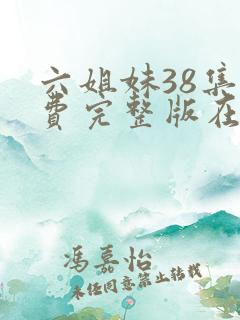 六姐妹38集
费完整版在
冯嘉怡
未经同意禁止转载